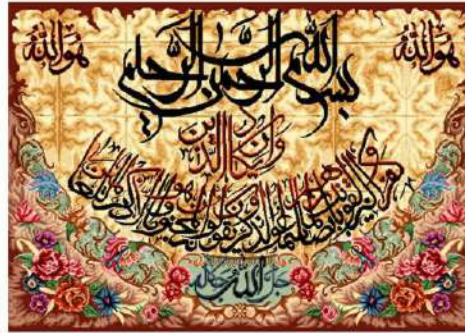 هو الله
بسم الله الرحمن الرحيم
هو الله
وان يكاد الذين
كفروا ليزلقونك بابصارهم لما سمعوا الذكر ويقولون انه لمجنون وما هو الا ذكر للعالمين
الله جل جلاله